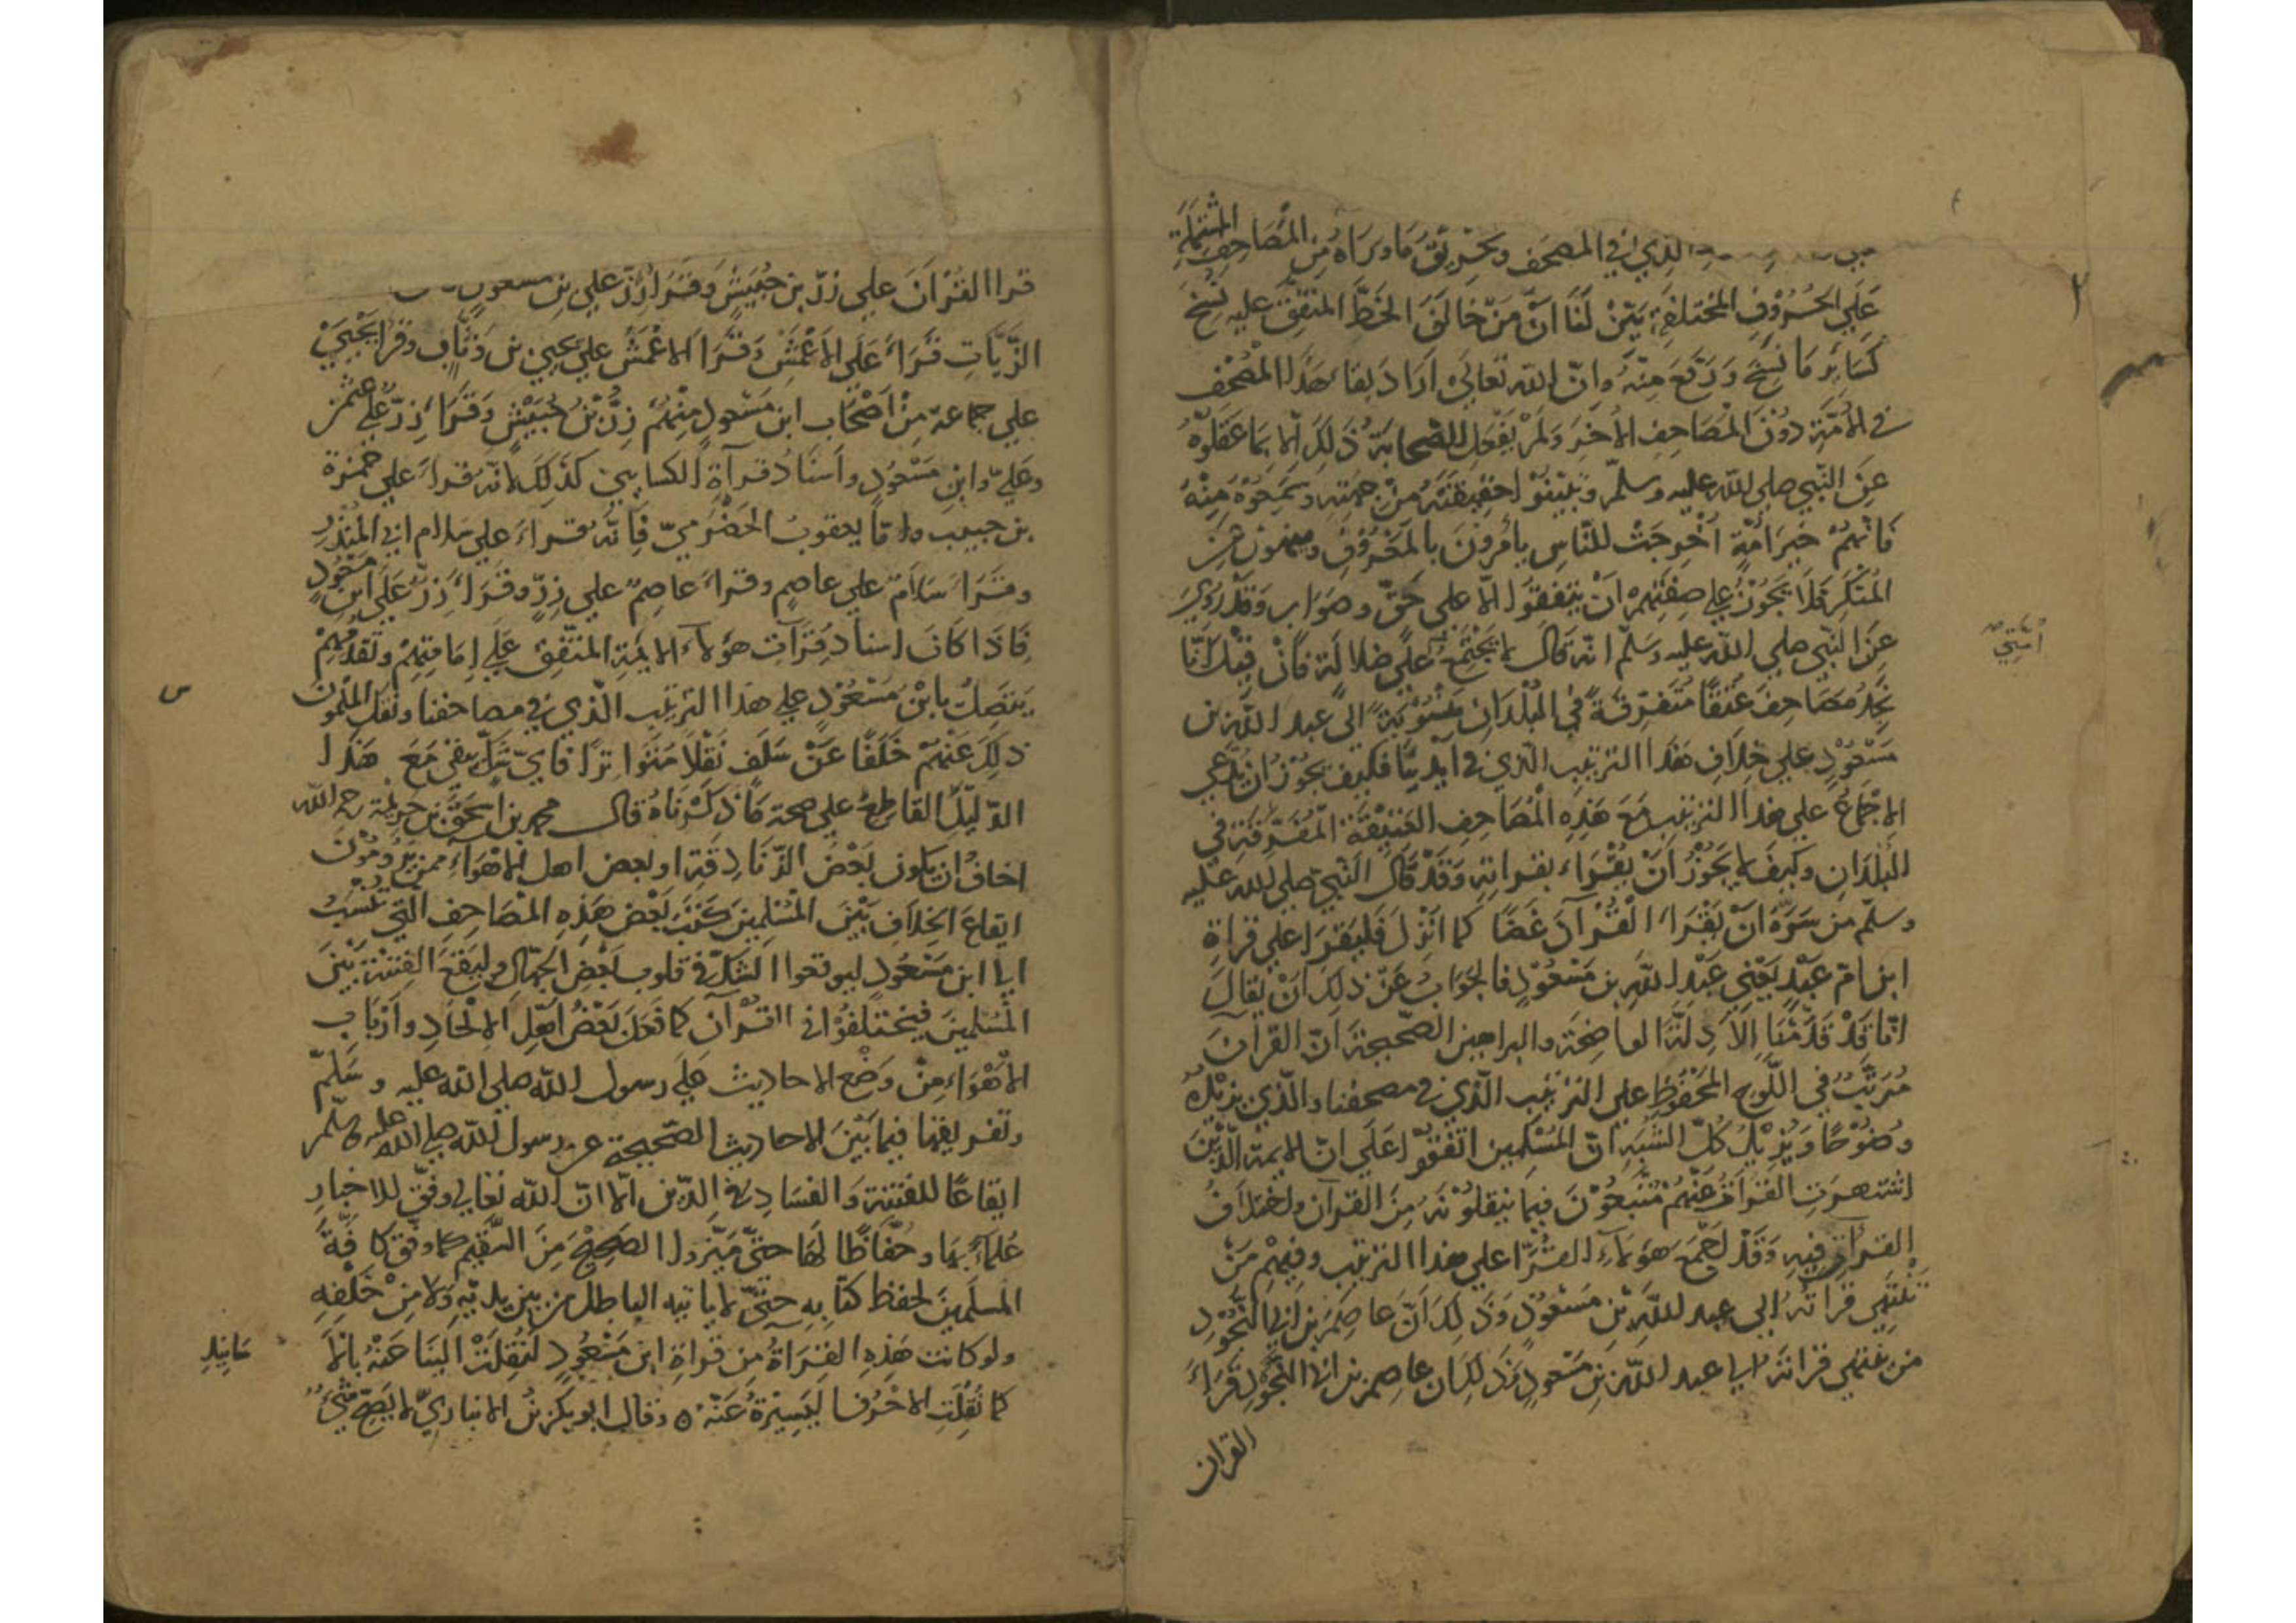 الذي في المصحف وتحريق ما وراه من المصاحف المشتملة
علي الحُرُوْفِ المختلفة بيَّنَ لَنَا اَنَّ مَنْ خَالَفَ الخَطَّ المتّفقَ عليه نُسِخَ
كسَايْرِ مَا نُسِخَ وَرُفِعَ مِنْهُ وانّ الله تعَالَي اَرَادَ بقاءَ هَذا المُصْحَف
في الاُمَّةِ دُوْنَ المصَاحِفِ الاُخَرَ وَلَمْ يفْعَلِ الصحابَة ذَلِكَ الّا بمَا عَقَلوْهُ
عَنِ النَّبي صلي الله عليه وسلّم وتيقّنوْا حقيقتَهُ مِنْ جهتِهِ وسَمِعُوْهُ مِنْهُ
فَانّهمْ خَير اُمَّةٍ اُخْرِجَتْ للنَّاسِ يأمُرُونَ بالمَعْرُوْفِ وينهون عَنِ
المُنْكَرِ فَلَا يَجُوْزُ علي صِفتِهِمْ اَنْ يتفِقوا الّا علي حَقّ وصَوَاب وقَدْ رُوِيَ
عَنِ النَّبي صلي الله عليه وسَلّم انّه قَال لا تجْتَمِعُ علي ضلالَة فَانْ قِيْلَ انّا
امّتي
نَجِدُ مصَاحِفَ عُتُقًا مُتَفرّقَةً في البُلْدَانِ مَنْسُوْبَةً الَي عبد الله بن
مَسْعُوْدٍ علي خِلَافِ هَذا الترتيب الّذي في ايدينَا فكيف يجُوْزُ ان يُدّعي
الاجْماعُ علي هذا الترتيب مَعَ هَذِهِ المُصَاحِف العَتِيْقَةِ المُتفَرِّقةِ في
البُلْدَانِ وكَيفَ لا يَجُوْزُ اَنْ يُقْرَاءَ بقراتِهِ وَقَدْ قَالَ النَّبيّ صلي الله عليه
وسلّم من سَرّهُ اَنْ يَقْرَاءَ القُرْآنَ غَضًّا كما انْزِلَ فَليَقرَا علي قراة
ابن امّ عَبْدٍ يَعْني عَبْد الله بن مَسْعُوْدٍ فالجَوَابُ عَنْ ذلِكَ اَنْ يُقَال
انّا قَدْ قَدَّمْنَا الاَدِلّةَ الواضِحَة والبراهين الصّحيحَةَ انّ القرآن
مُرَتَّبٌ في اللّوح المَحْفُوْظِ علي الترتيب الّذي في مصحفنا والّذي يزيْدُهُ
وضُوْحًا وَيُزِيْلُ كُلَّ الشّبَهِ انّ المُسْلِمين اتفقوْا عَلَي انّ الايمة الّذِيْنَ
اشتهرَتِ القراةُ عَنْهُمْ مُتّبَعُوْنَ فيمَا ينقلُوْنَهُ مِنَ القرآن واختلَافُ
القرآةِ فيهِ وَقَدْ اَجْمَعَ هَؤلاءِ القُرّا علي هذا الترتيب وفيهمْ مَنْ
تَنْتَهي قراتُهُ الي عبد الله بْنِ مَسْعُوْدٍ وَذلِكَ اَنّ عَاصِمَ بْنِ ابي النَّجُوْدِ
من تنتهي قراته الي عبد الله بن مَسْعودٍ وذَلِكَ ان عاصم بن ابي النّجُوْدِ قَرَاءَ
القران
قرا القُرْانَ علي زرّ بن حُبَيْشٍ وقَرَا زِرّ علي بن مسعود
الزّيَّاتِ قَرَاءَ عَلَي الاَعْمَشِ وَقَرَاَ الاعْمَشُ عَلي يحيي بن وَثّابٍ وقرَا يَحْيَيْ
علي جماعةٍ مِنْ اَصْحَاب ابن مَسْعودٍ مِنْهُمْ زِرُّ بْنُ حُبَيْشٍ وَقرَاَ زِرّ علي عثمن
وعَلِيّ وابنِ مَسْعُوْدٍ واَسنَادُ قرآةِ الكسايي كَذلِكَ لانّه قراءَ علي حمزة
بن حبيب وامّا يعقوبُ الحَضْرَميّ فانّهُ قراءَ علي سلام ابي المُنْذِرِ
وقَرَاءَ سَلَامٌ علي عاصمٍ وقراءَ عاصِمٌ علي زِرّ وقَرَاءَ زِرّ عَلَي ابن مَسْعُوْدٍ
فَاذَا كَانَ اسنَادُ قِرَآتِ هؤلاءِ الايمَةِ المتّفِقِ عَلَي اِمَامَتِهِمْ وتَقَدُّمِهِمْ
يتصِلُ بابْنِ مَسْعُوْدٍ علي هذا الترتيب الّذي في مصاحفنا ونَقَل المُسْلمونَ
س
ذلِكَ عَنْهُمْ خَلَفًا عَنْ سَلَفٍ نَقْلًا مُتَوَاتِرًا فايّ شَكّ يبقي مَعَ هَذَا
الدّليْلِ القاطع علي صحة مَا ذكَرْنَاهُ قال محمد بن اسحق بن خزيمة رحمه الله
اخافُ ان يكون بَعْضُ الزّنَادِقَةِ او بعض اهل الاهْوَآءِ ممن يَرُوْمُوْنَ
ايقاعَ الخِلاَفِ بَيْنَ المُسْلِمِينَ كتَبَ بَعْضَ هَذِهِ المصَاحِفِ التي تُنسَبُ
الي ابن مَسْعُوْدٍ ليوقعوا الشكّ في قلوب بَعْض الجهّال وليقعَ الفتنةُ بَيْنَ
المُسْلِمينَ فيختلفوْا في القرْآن كما فَعَلَ بَعْضُ اَهْلِ الاِلْحَادِ واَرْبَاب
الاَهْوَاءِ مِنْ وَضْعِ الاحاديث عَلَي رسول الله صلي الله عليه وسَلّمَ
وتفريقها فيمَا بَيْنَ الاحَاديث الصّحيحةِ عن رسول الله صلي الله عليه وسلّم
ايقاعًا للفتنة وَالفسَادِ في الدّين الّا انّ اللهَ تعَالي وَفّقَ للاخبار
عُلمَآءً بهَا وحُفّاظًا لَهَا حتّي مَيّزوا الصّحِيْحَ مِنَ السّقيم كما وفّق كافّةَ
المسلمينَ لحفظ كتَابِهِ حتّي لا ياتيه الباطل من بين يديْهِ ولا مِنْ خَلْفِهِ
ولو كانت هَذِهِ القِرَاةُ مِنْ قراةِ ابن مَسْعُوْدٍ لنُقِلَتْ الينَا عَنْهُ بالا
سَانيد
كما نُقِلَتِ الاحْرُفُ اليَسِيْرَةُ عَنْهُ ٥ وقال ابو بكر بنُ الانباريّ لا يَصِحّ شيْءٌ